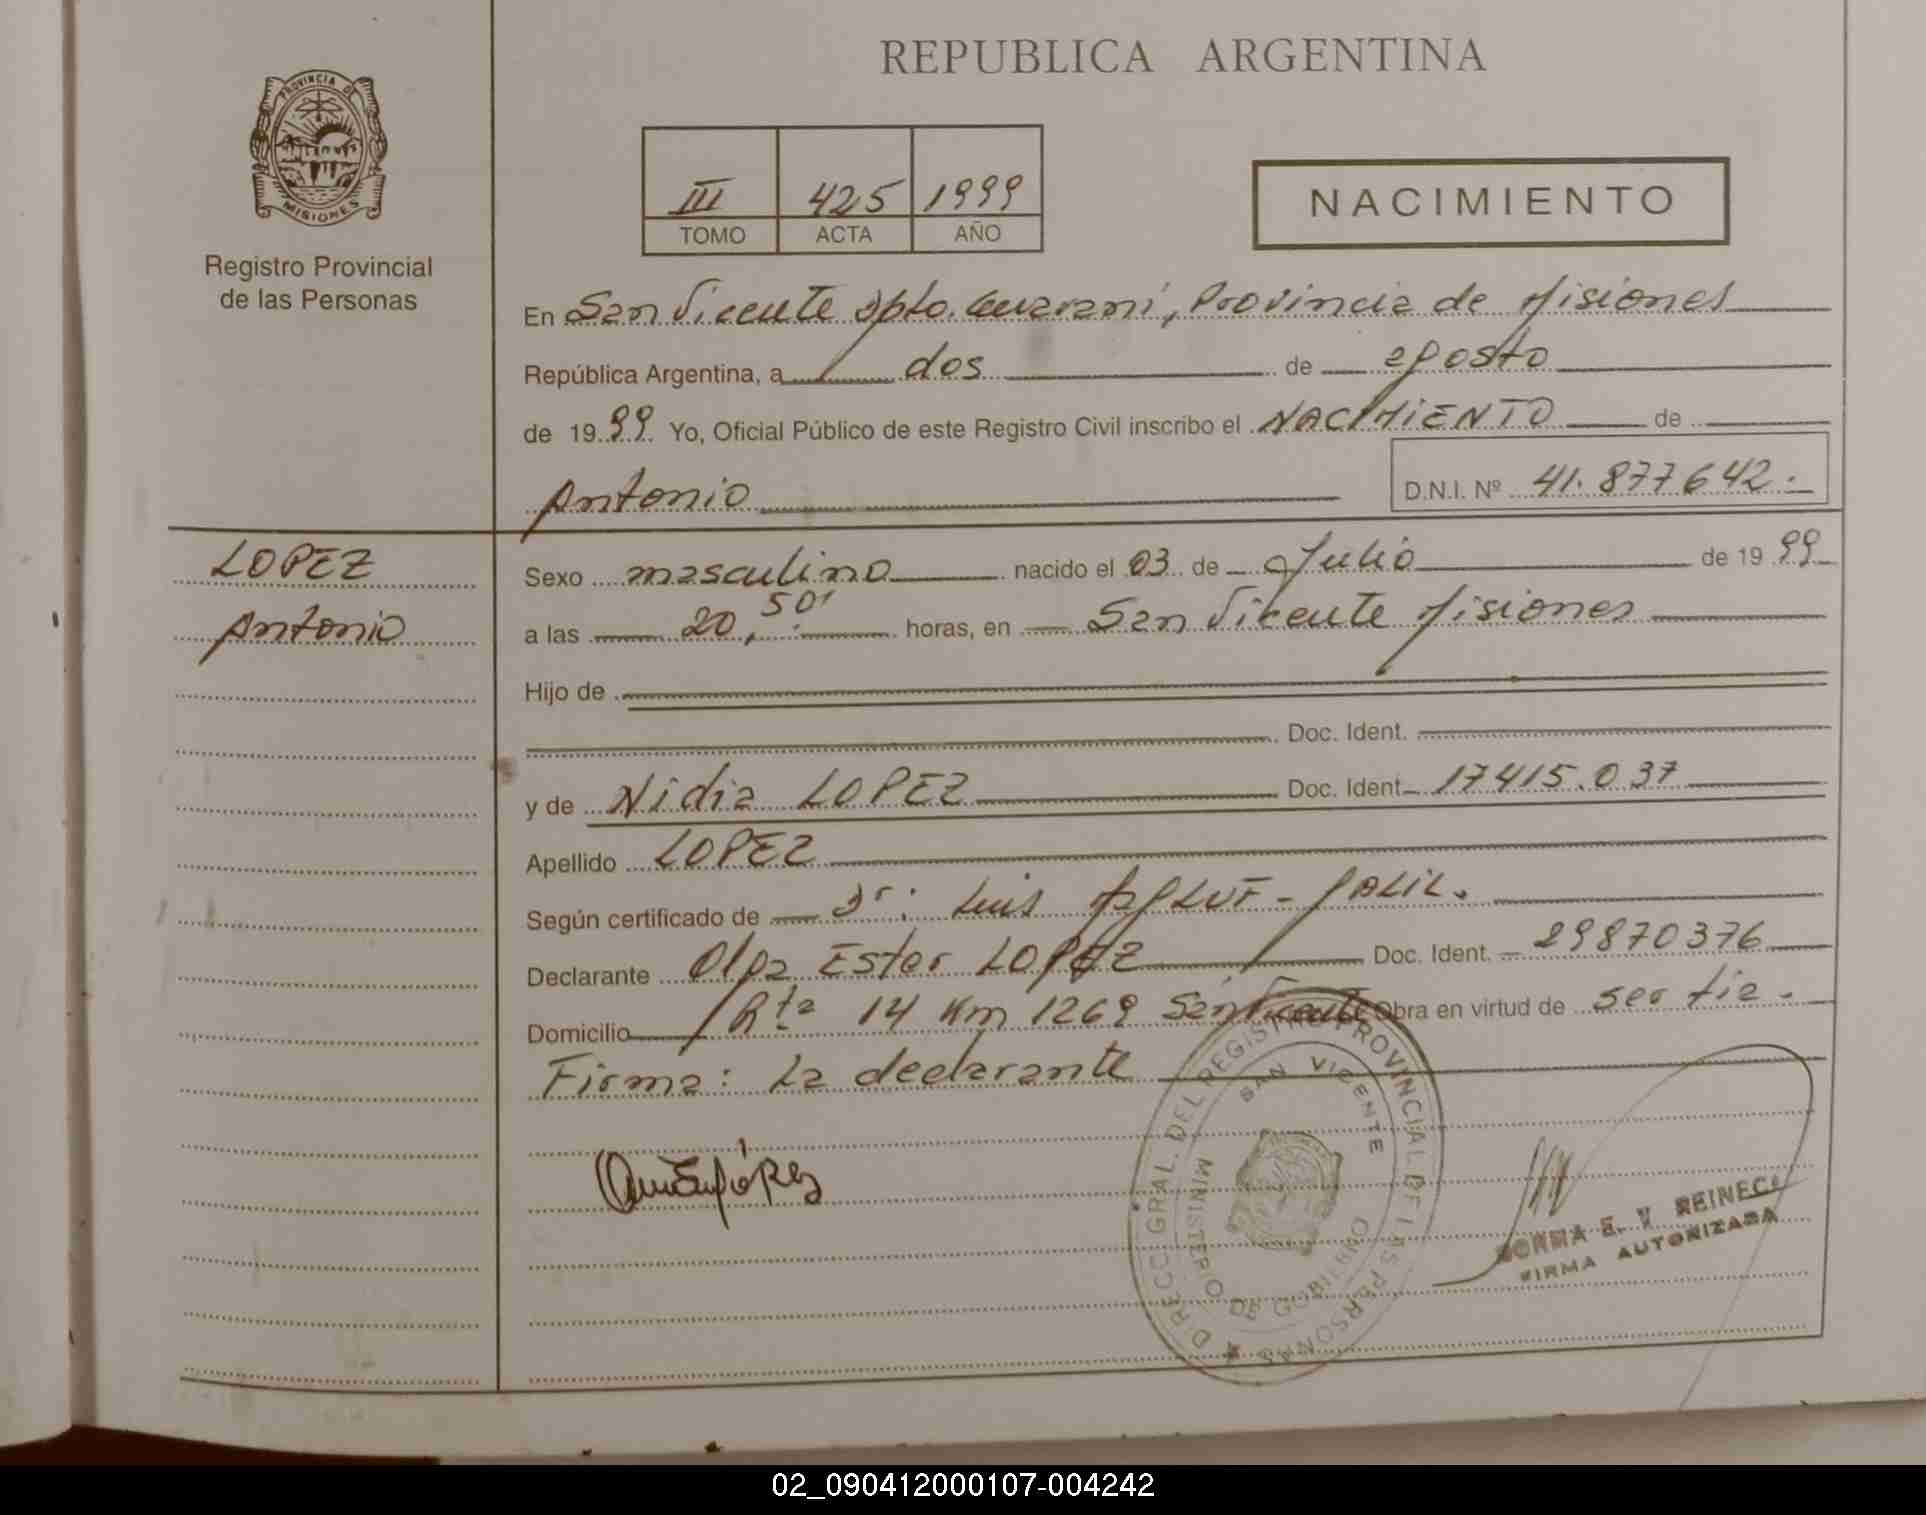 REPUBLICA ARGENTINA
PROVINCIA DE
MISIONES
Registro Provincial
de las Personas
III 425 1999
TOMO ACTA AÑO
NACIMIENTO
En San Vicente Dpto. Guarani, Provincia de Misiones
República Argentina, a dos de agosto
de 1999 Yo, Oficial Público de este Registro Civil inscribo el NACIMIENTO de
Antonio D.N.I. Nº 41.877642.-
LOPEZ
Antonio
Sexo masculino nacido el 03 de Julio de 1999
a las 20,50' horas, en San Vicente Misiones
Hijo de
Doc. Ident.
y de Nidia LOPEZ Doc. Ident. 17415.037
Apellido LOPEZ
Según certificado de Dr: Luis
Declarante Olga Ester LOPEZ Doc. Ident. 29870376
Domicilio Rta 14 Km 1269 San Vicente Obra en virtud de ser tia.-
Firma: La declarante
DIRECC. GRAL. DEL REGISTRO PROVINCIAL DE LAS PERSONAS
SAN VICENTE
MINISTERIO DE GOBIERNO
NORMA E. V. REINECK
FIRMA AUTORIZADA
02_090412000107-004242